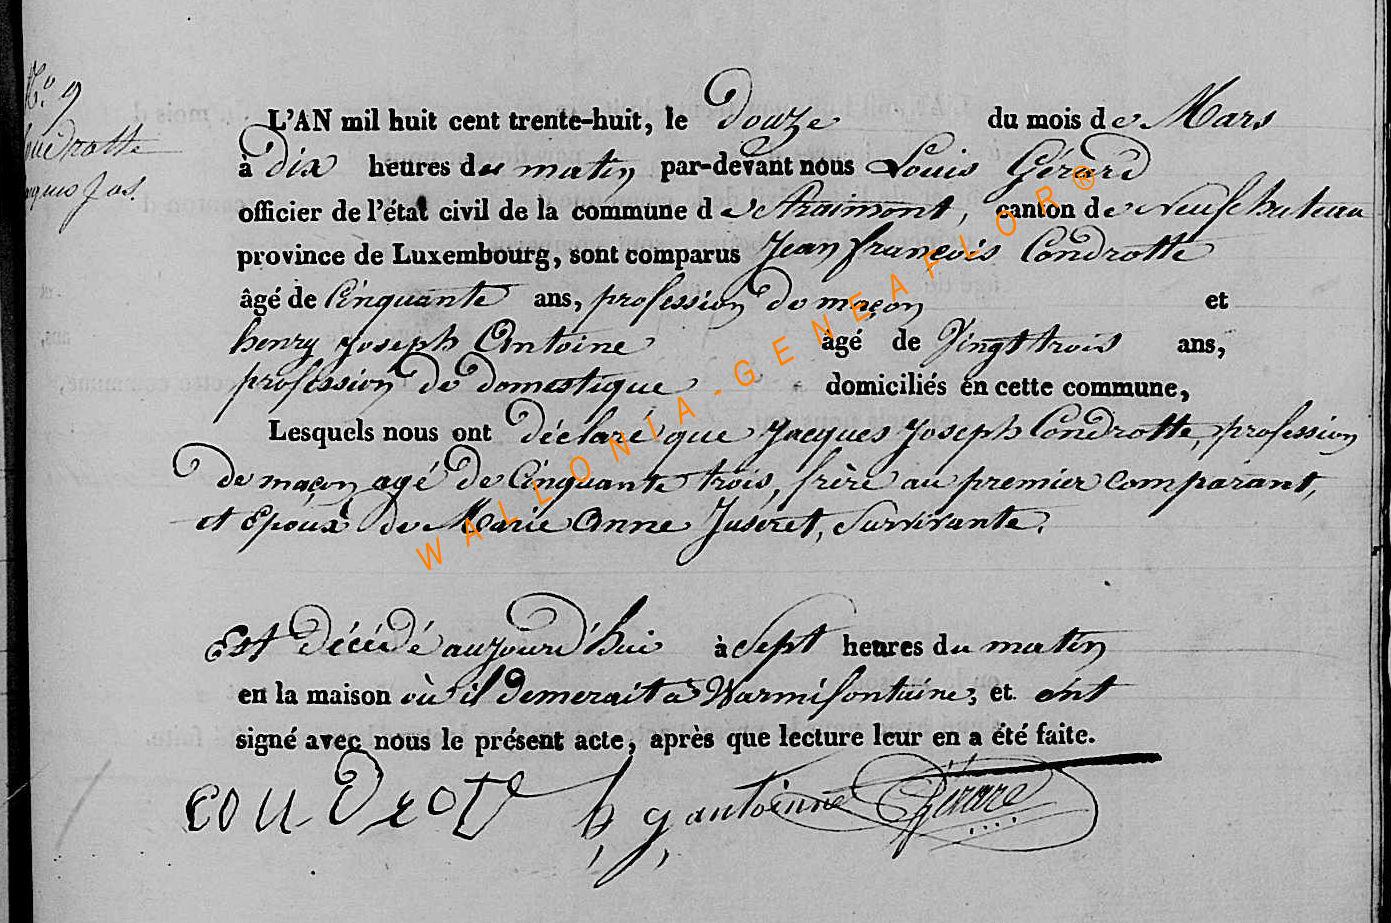 N.° 9
Condrotte
Jacques Jos.
L'AN mil huit cent trente-huit, le douze du mois de Mars
à dix heures du matin par-devant nous Louis Gérard
officier de l'état civil de la commune de Straimont, canton de Neufchateau
province de Luxembourg, sont comparus Jean françois Condrotte
âgé de Cinquante ans, profession de maçon et
henry Joseph Antoine âgé de Vingt trois ans,
profession de domestique domiciliés en cette commune,
Lesquels nous ont déclaré que Jacques Joseph Condrotte, profession
de maçon agé de Cinquante trois, frère au premier comparant,
et Epoux de Marie Anne Juseret, Survivante.
Est décédé aujourd'hui à Sept heures du matin
en la maison où il demerait à Warmifontaine; et ont
signé avec nous le présent acte, après que lecture leur en a été faite.
condrott h, j, antoinne Gérard
WALLONIA-GENEAFLOR®